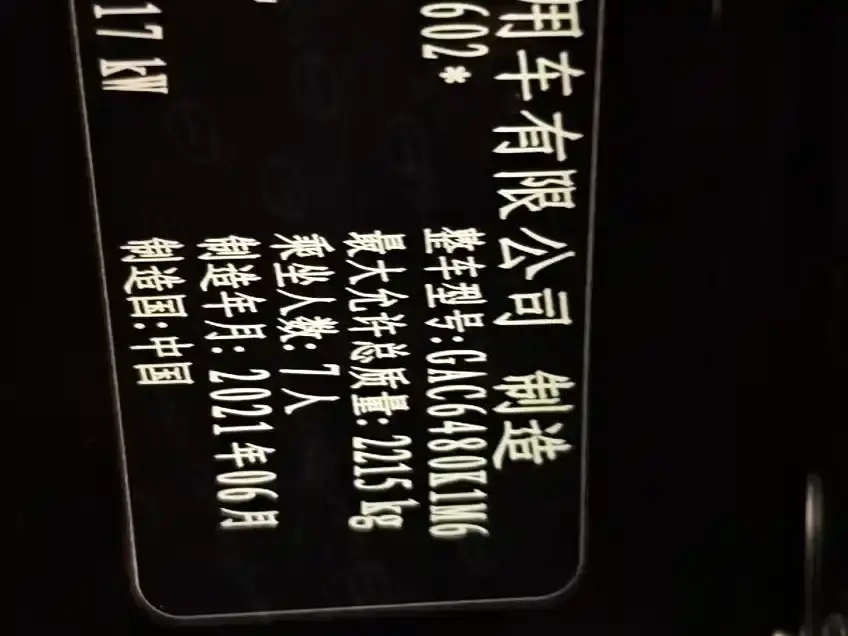 用车有限公司 制造
602*
整车型号:GAC6480K1M6
最大允许总质量:2215kg
乘坐人数:7人
制造年月:2021年06月
17 kW
制造国:中国